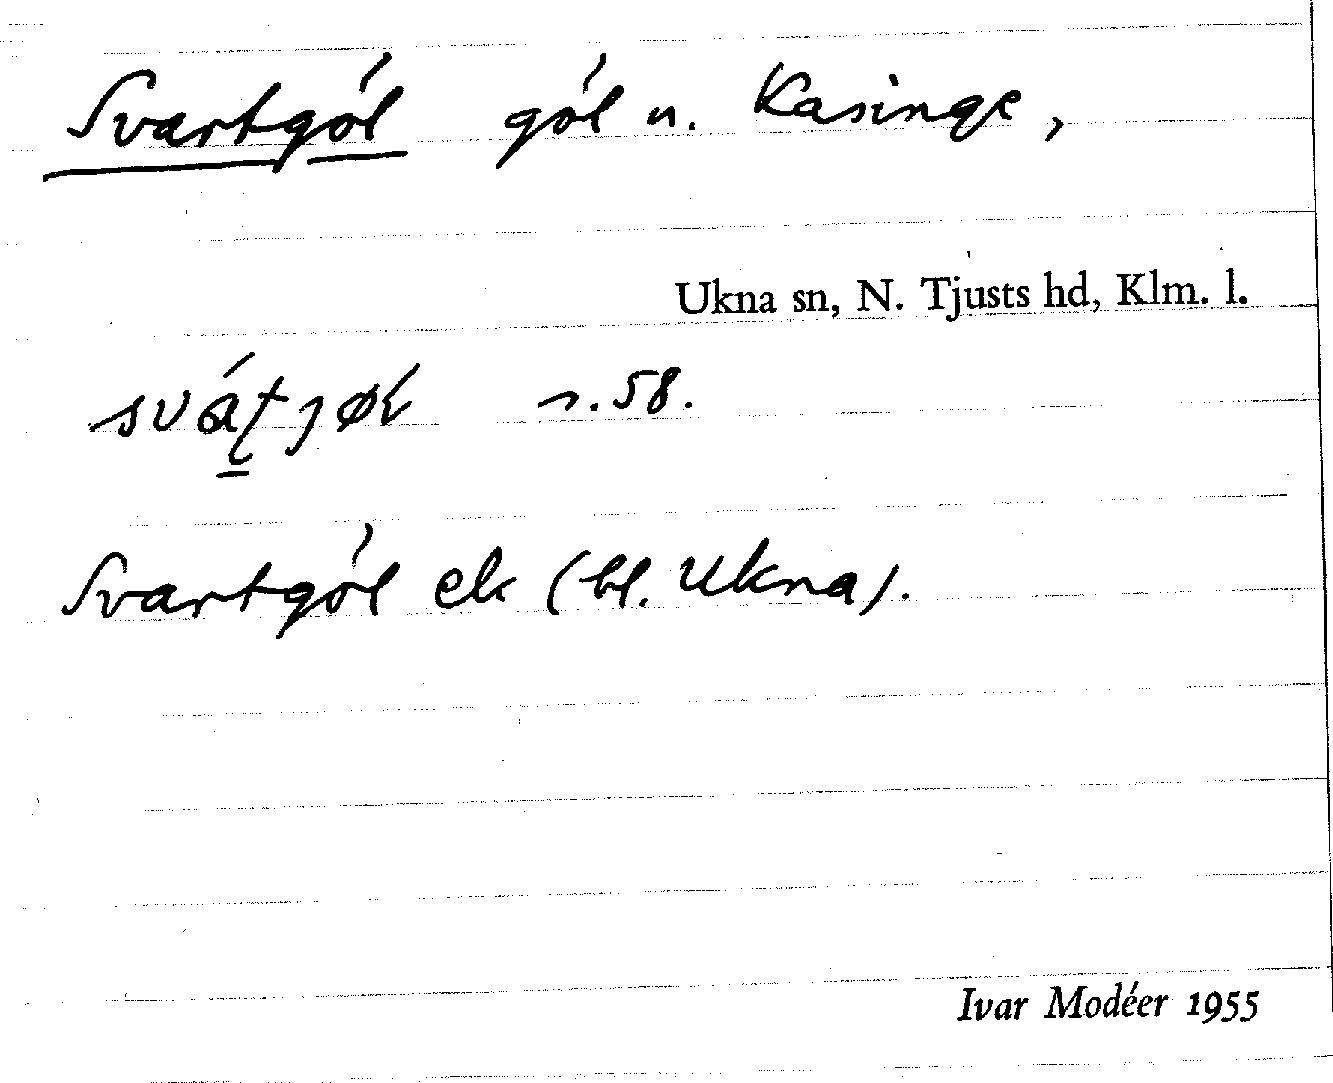 Svartgól gól n. Kasinge,
Ukna sn, N. Tjusts hd, Klm. l.
s. 58.
Svartgól ek (bl. Ukna).
Ivar Modéer 1955